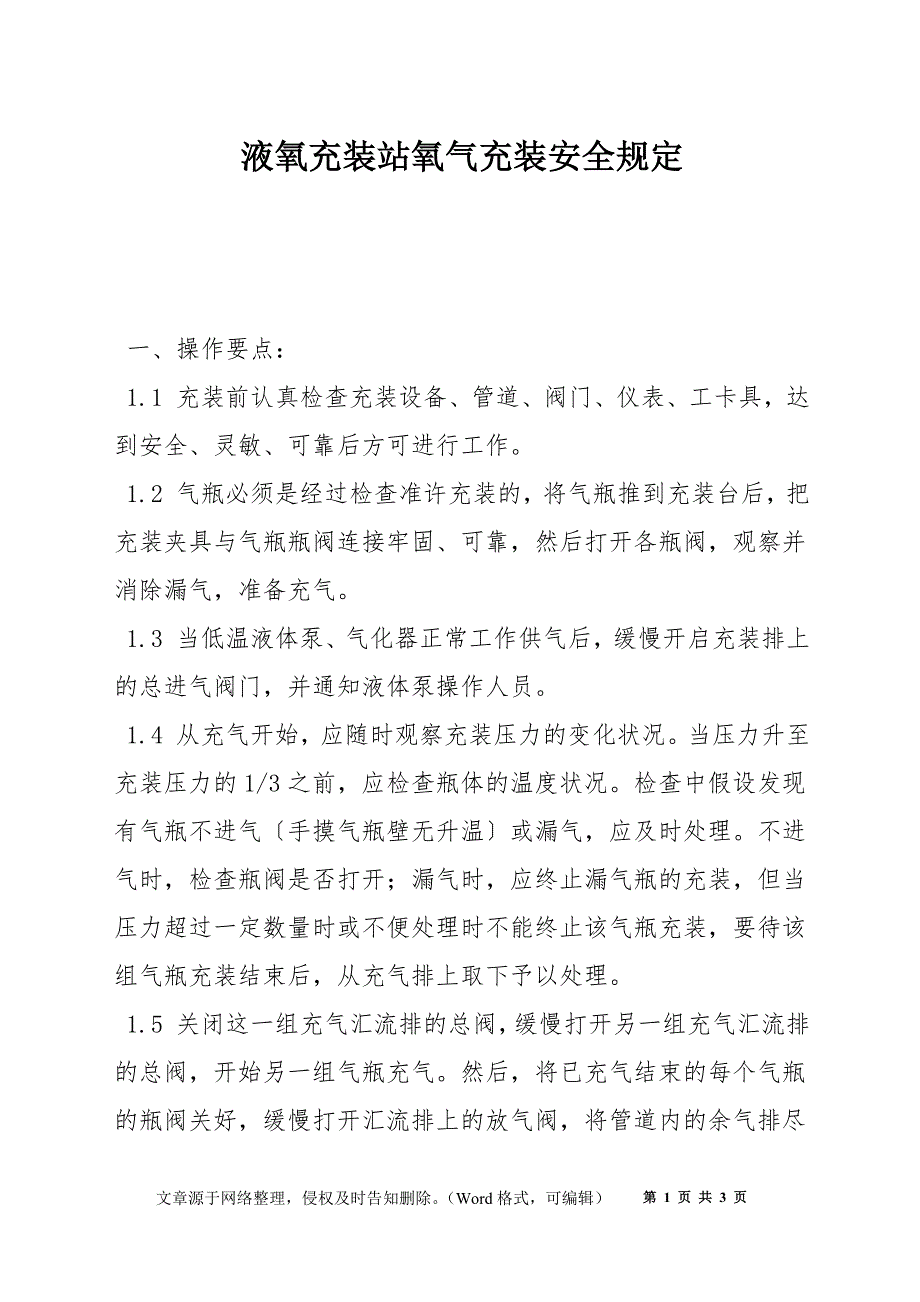 液氧充装站氧气充装安全规定
一、操作要点：
1.1 充装前认真检查充装设备、管道、阀门、仪表、工卡具，达
到安全、灵敏、可靠后方可进行工作。
1.2 气瓶必须是经过检查准许充装的，将气瓶推到充装台后，把
充装夹具与气瓶瓶阀连接牢固、可靠，然后打开各瓶阀，观察并
消除漏气，准备充气。
1.3 当低温液体泵、气化器正常工作供气后，缓慢开启充装排上
的总进气阀门，并通知液体泵操作人员。
1.4 从充气开始，应随时观察充装压力的变化状况。当压力升至
充装压力的1/3之前，应检查瓶体的温度状况。检查中假设发现
有气瓶不进气〔手摸气瓶壁无升温〕或漏气，应及时处理。不进
气时，检查瓶阀是否打开；漏气时，应终止漏气瓶的充装，但当
压力超过一定数量时或不便处理时不能终止该气瓶充装，要待该
组气瓶充装结束后，从充气排上取下予以处理。
1.5 关闭这一组充气汇流排的总阀，缓慢打开另一组充气汇流排
的总阀，开始另一组气瓶充气。然后，将已充气结束的每个气瓶
的瓶阀关好，缓慢打开汇流排上的放气阀，将管道内的余气排尽
文章源于网络整理，侵权及时告知删除。（Word格式，可编辑） 第 1 页 共 3 页